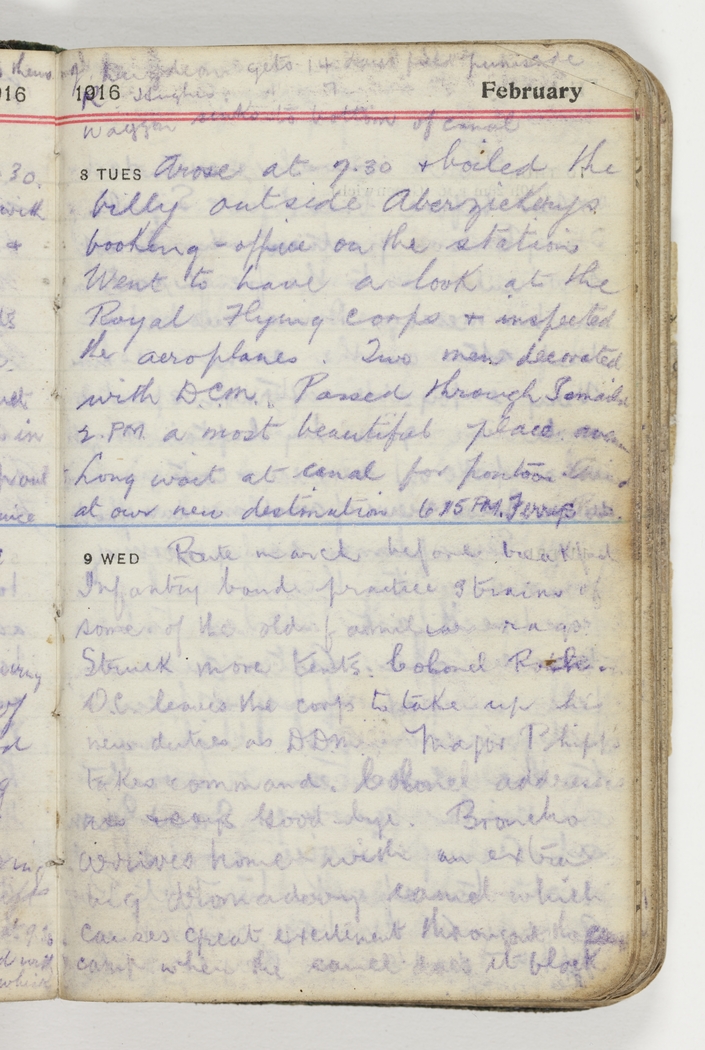 gets 14 days
1916 February
R Hughes
Waggon sinks to bottom of canal
8 TUES Arose at 7.30 & boiled the
billy outside Aberzickerys
booking-office on the station
Went to have a look at the
Royal Flying corps & inspected
the aeroplanes. Two men decorated
with D.C.M. Passed through Ismailia
2. P.M. a most beautiful place.
Long wait at canal for pontoon
at our new destination 6.15 P.M. Ferry
9 WED Route march before breakfast
Infantry band practice strains of
some of the old familiar rags.
Struck more tents. Colonel
O.C. leaves the corp to take up his
new duties as DDM. Major Phipps
takes command. Colonel addresses
us & says Good bye. Broncho
arrives home with an extra
big dromadery camel which
causes great excitement throughout the
camp when the camel does it block